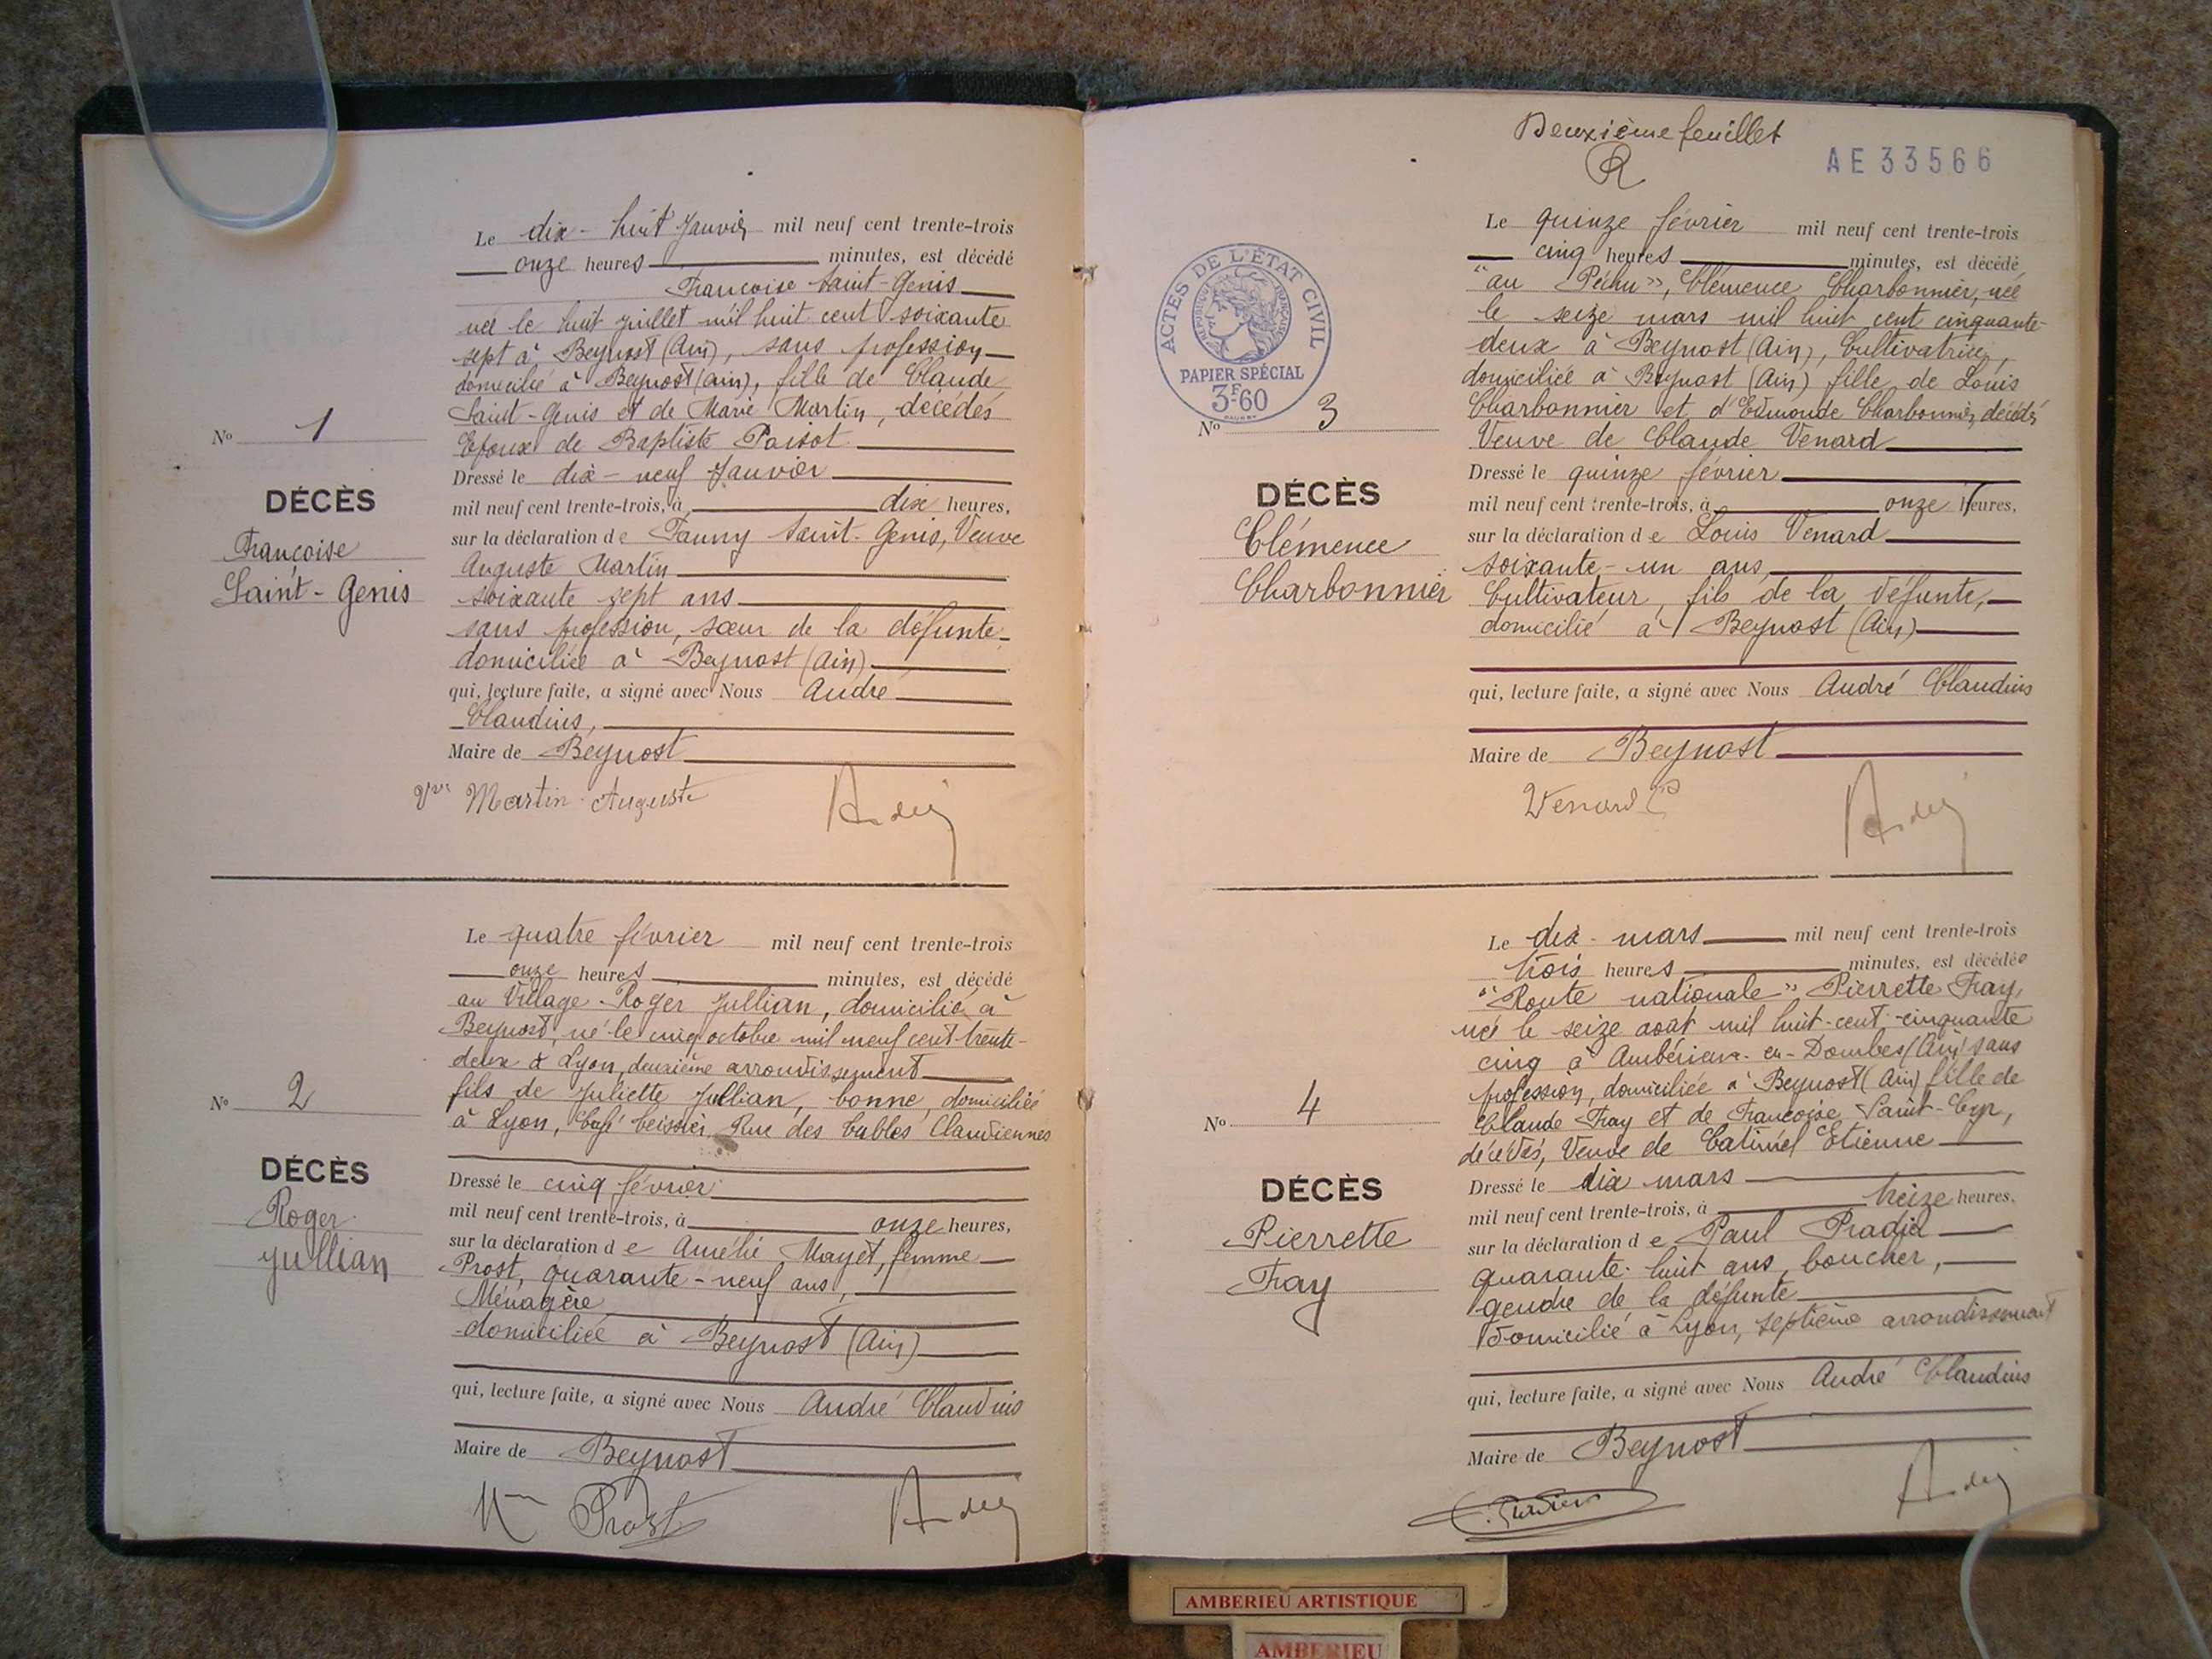 Le dix-huit Janvier mil neuf cent trente-trois
onze heures minutes, est décédé
Françoise Saint-Genis
née le huit juillet mil huit cent soixante
sept à Beynost (Ain), sans profession
domicilié à Beynost (Ain), fille de Claude
Saint-Genis et de Marie Martin, décédés
Epoux de Baptiste Poisot
Dressé le dix-neuf Janvier
mil neuf cent trente-trois, à dix heures,
sur la déclaration de Fanny Saint-Genis, Veuve
Auguste Martin
soixante sept ans
sans profession, sœur de la défunte
domiciliée à Beynost (Ain)
qui, lecture faite, a signé avec Nous André
Claudius,
Maire de Beynost
Vve Martin Auguste
No 1
DÉCÈS
Françoise
Saint-Genis
Le quatre février mil neuf cent trente-trois
onze heures minutes, est décédé
au Village Roger Jullian, domicilié à
Beynost, né le cinq octobre mil neuf cent trente-
deux à Lyon, deuxième arrondissement
fils de Juliette Jullian, bonne, domiciliée
à Lyon, Café Rue des Tables Claudiennes
Dressé le cinq février
mil neuf cent trente-trois, à onze heures,
sur la déclaration de Amélie Mayet, femme
Prost, quarante-neuf ans,
Ménagère
domiciliée à Beynost (Ain)
qui, lecture faite, a signé avec Nous André Claudius
Maire de Beynost
Prost
No 2
DÉCÈS
Roger
Jullian
Deuxième feuillet
R
AE 33566
ACTES DE L'ÉTAT CIVIL
RÉPUBLIQUE FRANÇAISE
PAPIER SPÉCIAL
3F60
Le quinze février mil neuf cent trente-trois
cinq heures minutes, est décédé
"au Péchu", Clémence Charbonnier, née
le seize mars mil huit cent cinquante-
deux à Beynost (Ain), Cultivatrice,
domiciliée à Beynost (Ain) fille de Louis
Charbonnier et d'Edmonde Charbonnier, décédés
Veuve de Claude Venard
Dressé le quinze février
mil neuf cent trente-trois, à onze heures,
sur la déclaration de Louis Venard
soixante-un ans,
Cultivateur, fils de la défunte,
domicilié à Beynost (Ain)
qui, lecture faite, a signé avec Nous André Claudius
Maire de Beynost
Venard
No 3
DÉCÈS
Clémence
Charbonnier
Le dix-mars mil neuf cent trente-trois
trois heures minutes, est décédée
"Route nationale" Pierrette Fray,
née le seize août mil huit-cent-cinquante
cinq à Ambérieux-en-Dombes (Ain) sans
profession, domiciliée à Beynost (Ain) fille de
Claude Fray et de Françoise Saint-Cyr,
décédés, Veuve de Catimel Etienne
Dressé le dix mars
mil neuf cent trente-trois, à treize heures,
sur la déclaration de Paul Pradier
quarante-huit ans, boucher,
gendre de la défunte
Domicilié à Lyon, septième arrondissement
qui, lecture faite, a signé avec Nous André Claudius
Maire de Beynost
No 4
DÉCÈS
Pierrette
Fray
AMBERIEU ARTISTIQUE
AMBERIEU